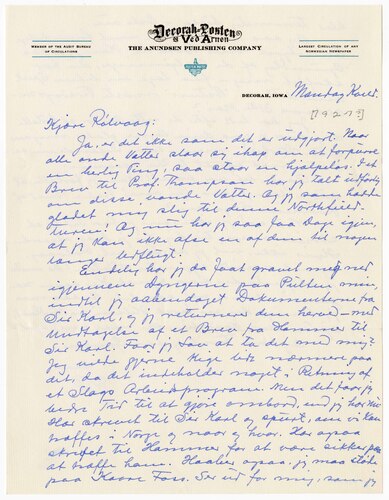 Decorah-Posten
& Ved Arnen
THE ANUNDSEN PUBLISHING COMPANY
MEMBER OF THE AUDIT BUREAU
OF CIRCULATIONS
LARGEST CIRCULATION OF ANY
NORWEGIAN NEWSPAPER
DECORAH, IOWA Mandag Kveld.
[1927?]
Kjære Rölvaag:
Ja, er det ikke som det er udgjort. Naar
alle onde Vætter slaar sig ihop om at forpurre
en herlig Ting, saa staar en hjælpelös. I et
Brev til Prof. Thompson har jeg talt udförlig
om disse onde Vætter. Og jeg som hadde
glædet mig slig til denne Northfield-
turen! Og nu har jeg saa faa Dage igjen,
at jeg kan ikke afse en af dem til nogen
længer Udflugt.
Endelig har jeg da faat gravet mig ned
igjennem Dyngerne paa Pulten min,
indtil jeg aabendaget Dokumenterne fra
Sir Karl, og jeg returnerer dem herved – med
Undtagelse af et Brev fra Hammer til
Sir Karl. Faar jeg Lov at ta det med mig?
Jeg vilde gjerne kige lidt nærmere paa
det, da det indeholder noget i Retning af
et Slags Arbeidsprogram. Men det faar jeg
bedre Tid til at gjöre ombord, ved jeg.
Har skrevet til Sir Karl og spurt, om vi kan
træffes i Norge og naar og hvor. Har ogsaa
skrevet til Hammer for at være sikker paa
at træffe ham. Haaber ogsaa, jeg maa støte
paa Kaare Foss. Ser ud for mig, som